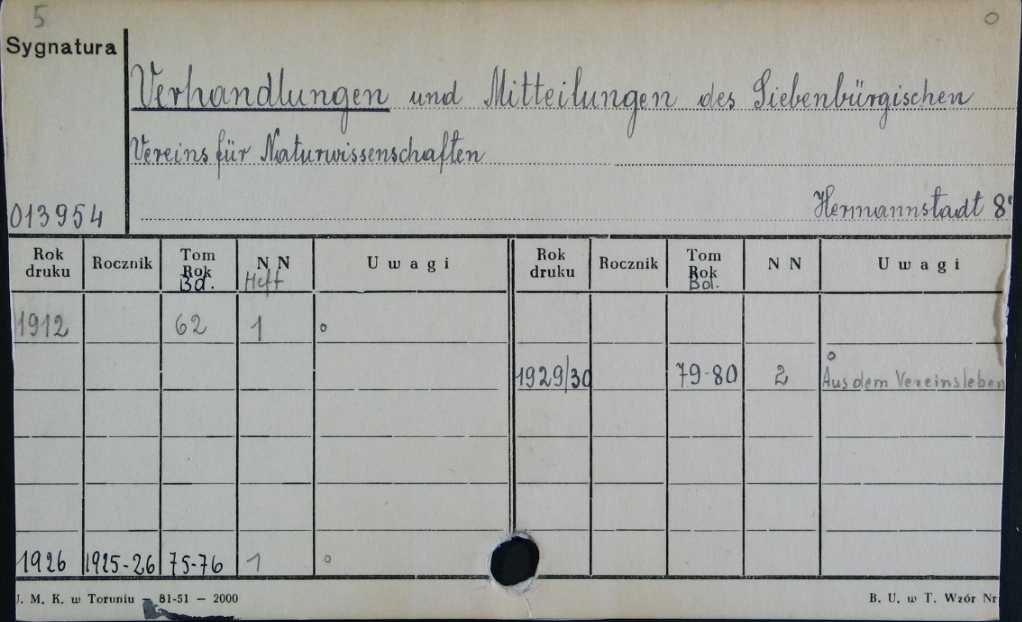 5
Sygnatura
Verhandlungen und Mitteilungen des Siebenbürgischen
Vereins für Naturwissenschaften
013954 Hermannstadt 8°
Rok druku Rocznik Tom Rok Bd. NN Heft Uwagi Rok druku Rocznik Tom Rok Bd. NN Uwagi
1912 62 1 o
1929/30 79-80 2 o Aus dem Vereinsleben
1926 1925-26 75-76 1 o
J. M. K. w Toruniu — 81-51 — 2000 B. U. w T. Wzór Nr